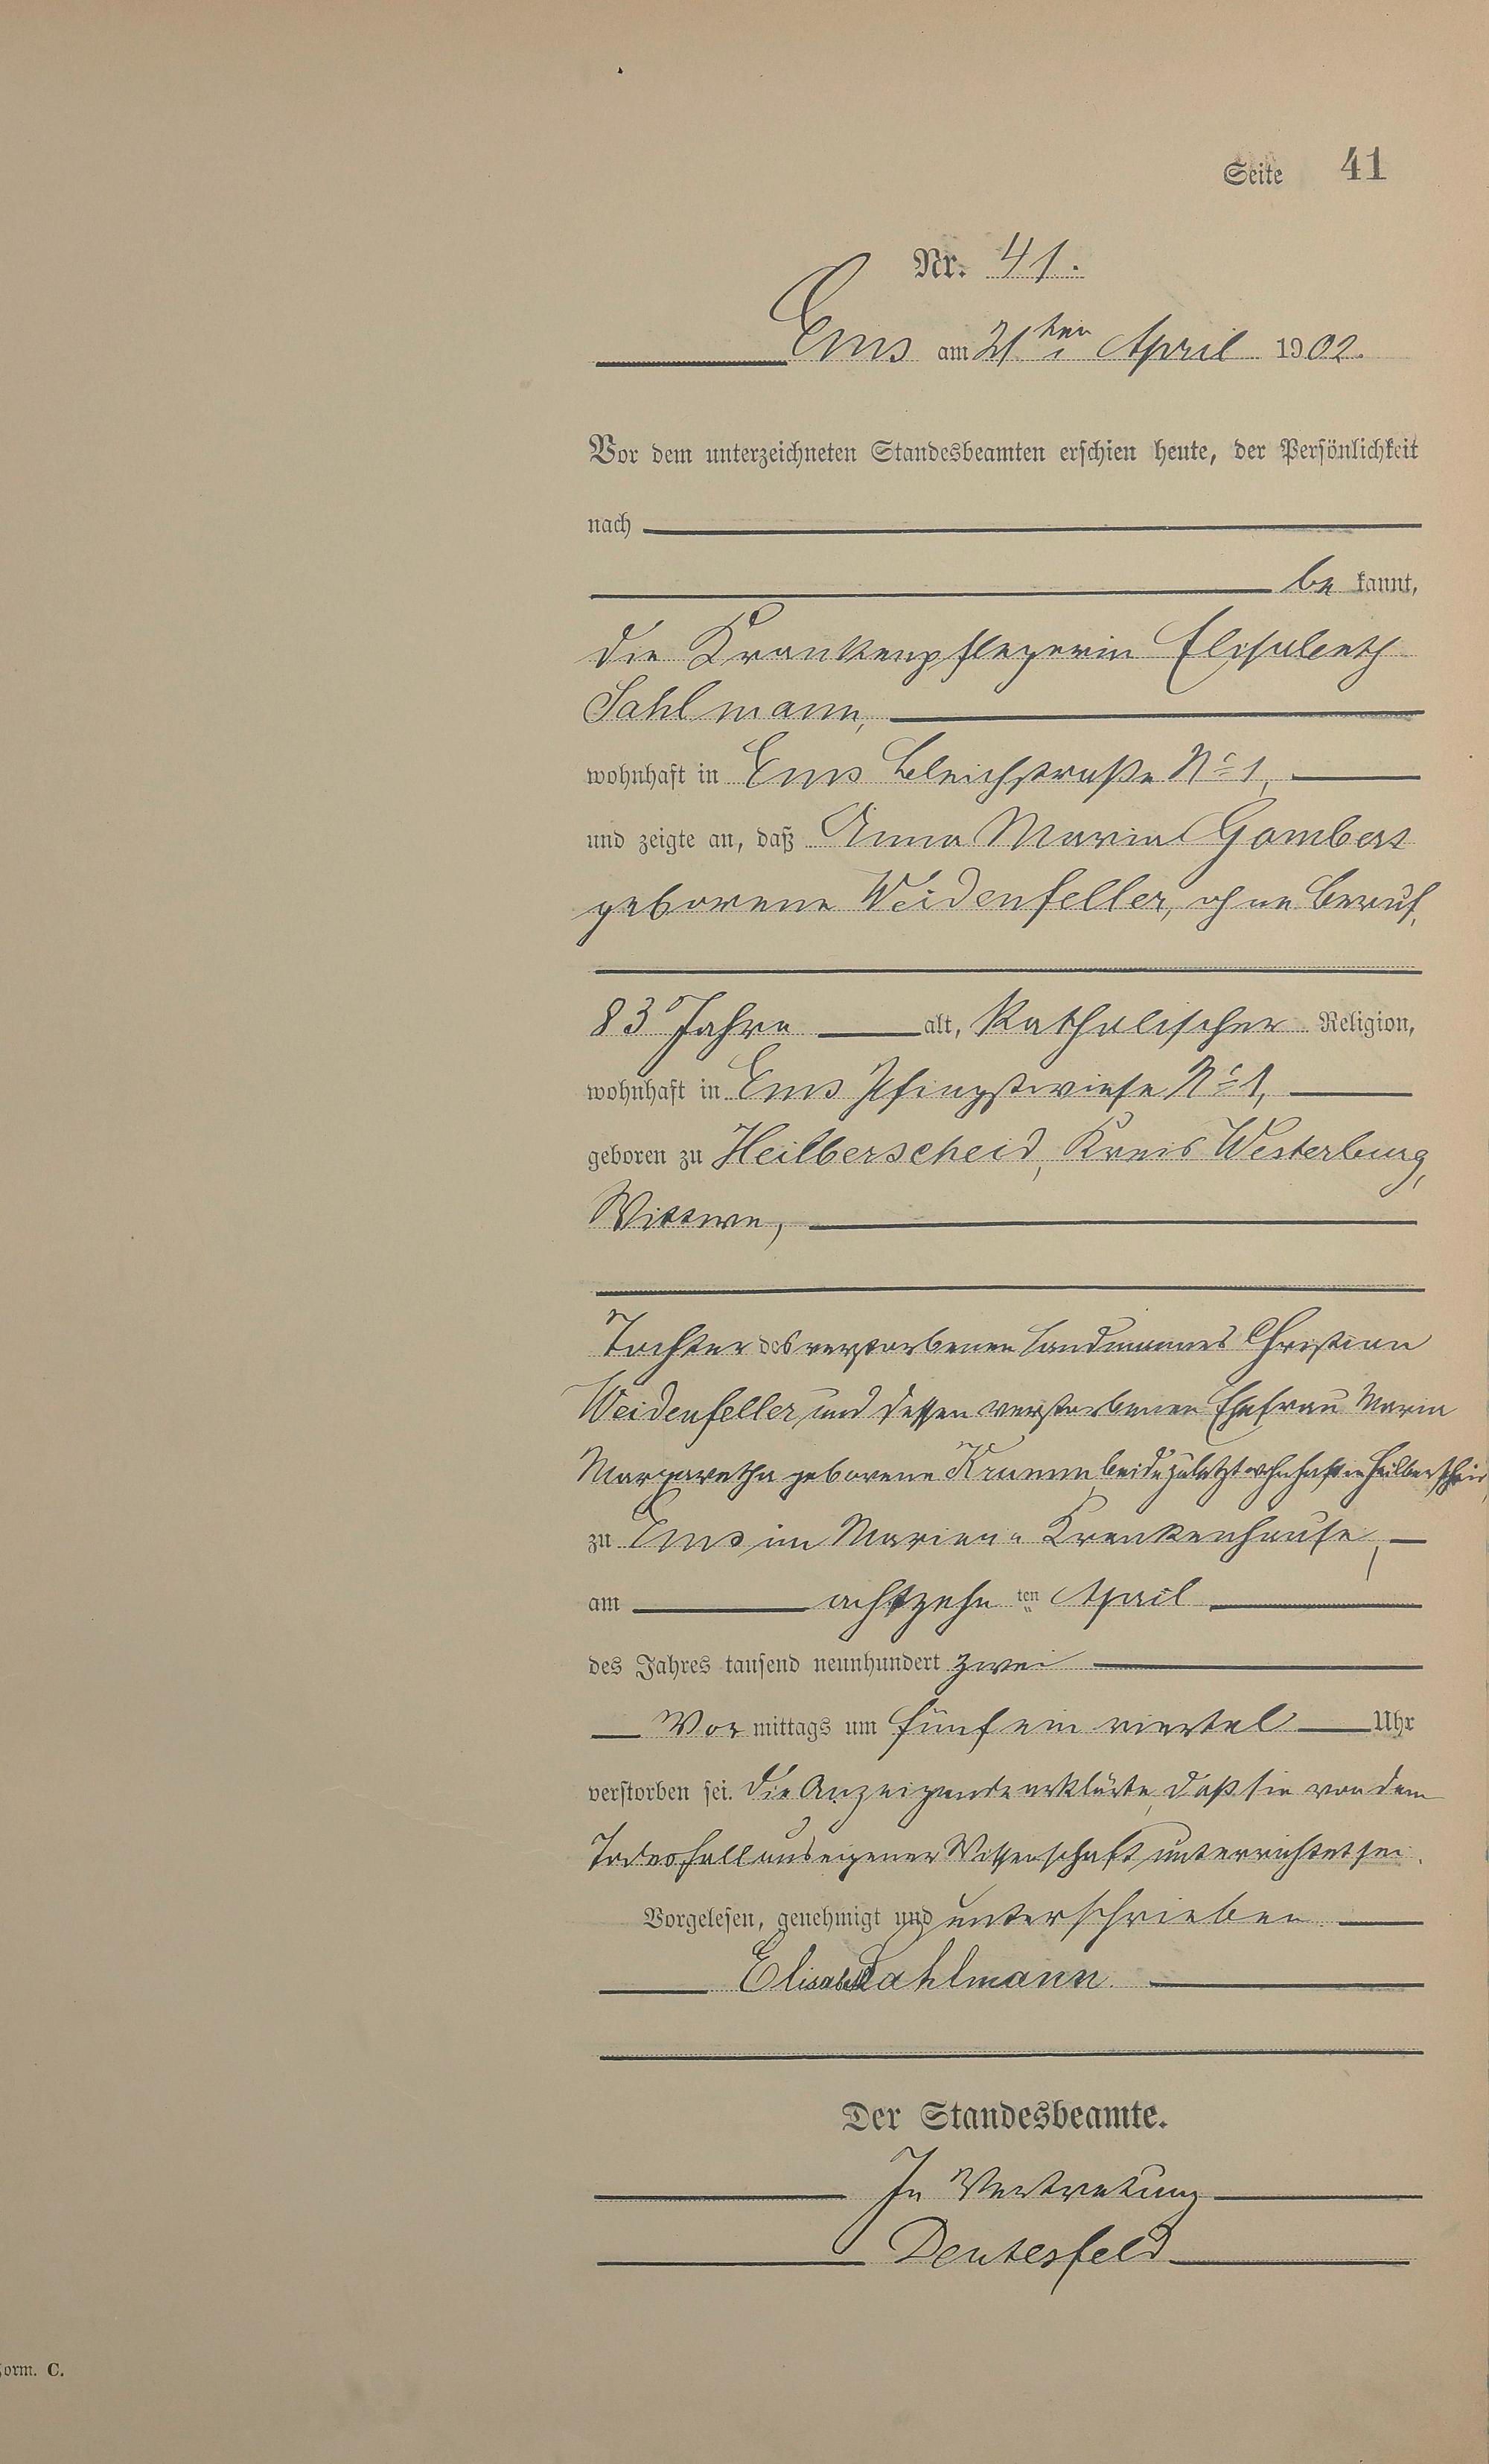 Seite 41
Nr. 41.
Ems am 21ten April 1902.
Vor dem unterzeichneten Standesbeamten erschien heute, der Persönlichkeit
nach
be kannt,
die Krankenpflegerin Elisabeth
Sahlmann,
wohnhaft in Ems Bleichstraße No 1,
und zeigte an, daß Anna Maria Gombert
geborene Weidenfeller, ohne Beruf,
83 Jahre alt, Katholischer Religion,
wohnhaft in Ems Pfingstwiese No 1,
geboren zu Heilberscheid, Kreis Westerburg,
Wittwe,
Tochter des verstorbenen Landmannes Christian
Weidenfeller und dessen verstorbenen Ehefrau Maria
Margaretha geborene Krumm, beide zuletzt wohnhaft in Heilberscheid,
zu Ems im Marien-Krankenhause,
am achtzehn ten April
des Jahres tausend neunhundert zwei
Vor mittags um fünf ein viertel Uhr
verstorben sei. Die Anzeigende erklärte, daß sie von dem
Todesfall aus eigener Wissenschaft unterrichtet sei.
Vorgelesen, genehmigt und unterschrieben.
Elisabeth Sahlmann.
Der Standesbeamte.
In Vertretung
Deutesfeld
Form. C.